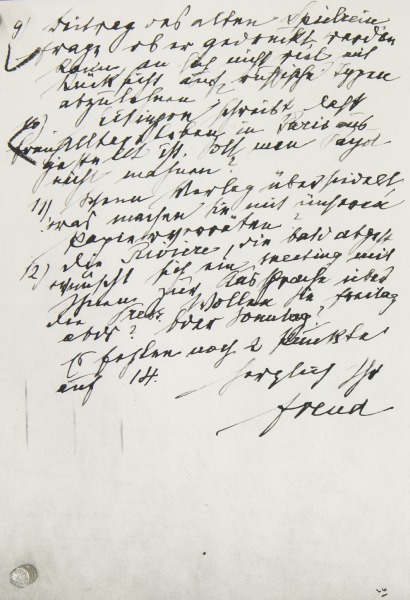 9) Beitrag des alten Spielrein
Frage ob er gedruckt werden
kann, an sich nicht mit
Rücksicht auf russische Typen
abzulehnen
10) Eitingon schreibt daß
Alltagsleben in Paris aus
gestellt ist. Soll man Payot
nicht mahnen?
11) Wenn Verlag übersiedelt
was machen Sie mit unseren
Papiervorräten?
12) Die Riviere, die bald abgeht
wünscht sich ein meeting mit
Ihnen hier, Aussprache über
die Press. Wollen Sie Freitag
abds? Oder Sonntag?
Es fehlen noch 2 Punkte
auf 14.
Herzlich Ihr
Freud